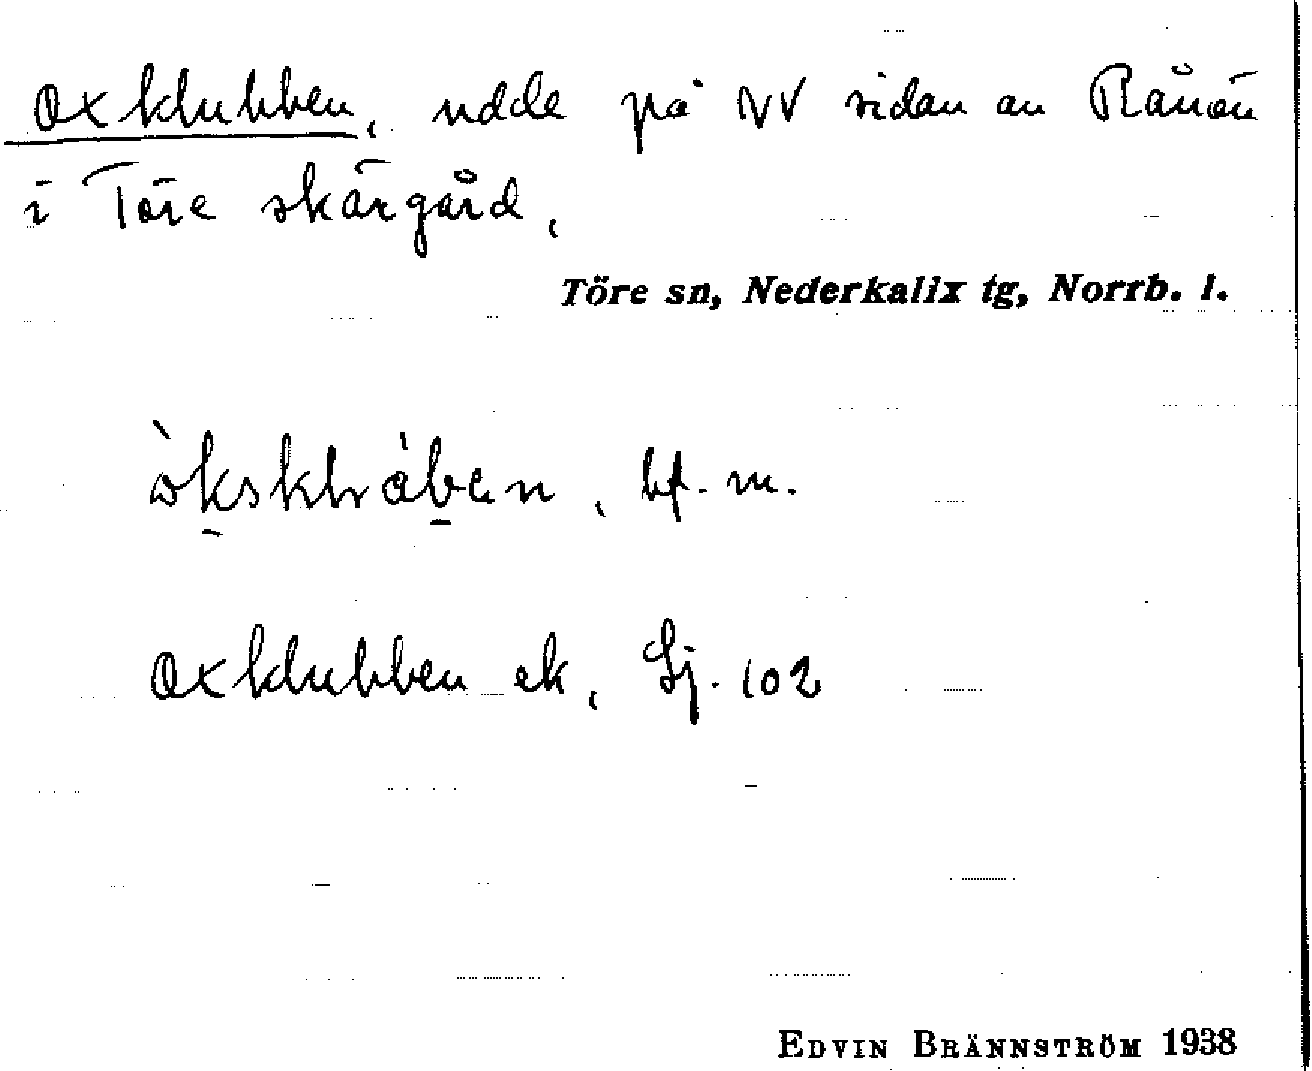 Oxklubben, udde på NV sidan av Rånön
i Töre skärgård,
Töre sn, Nederkalix tg, Norrb. l.
bf. m.
Oxklubben ek, Sj. 102
EDVIN BRÄNNSTRÖM 1938